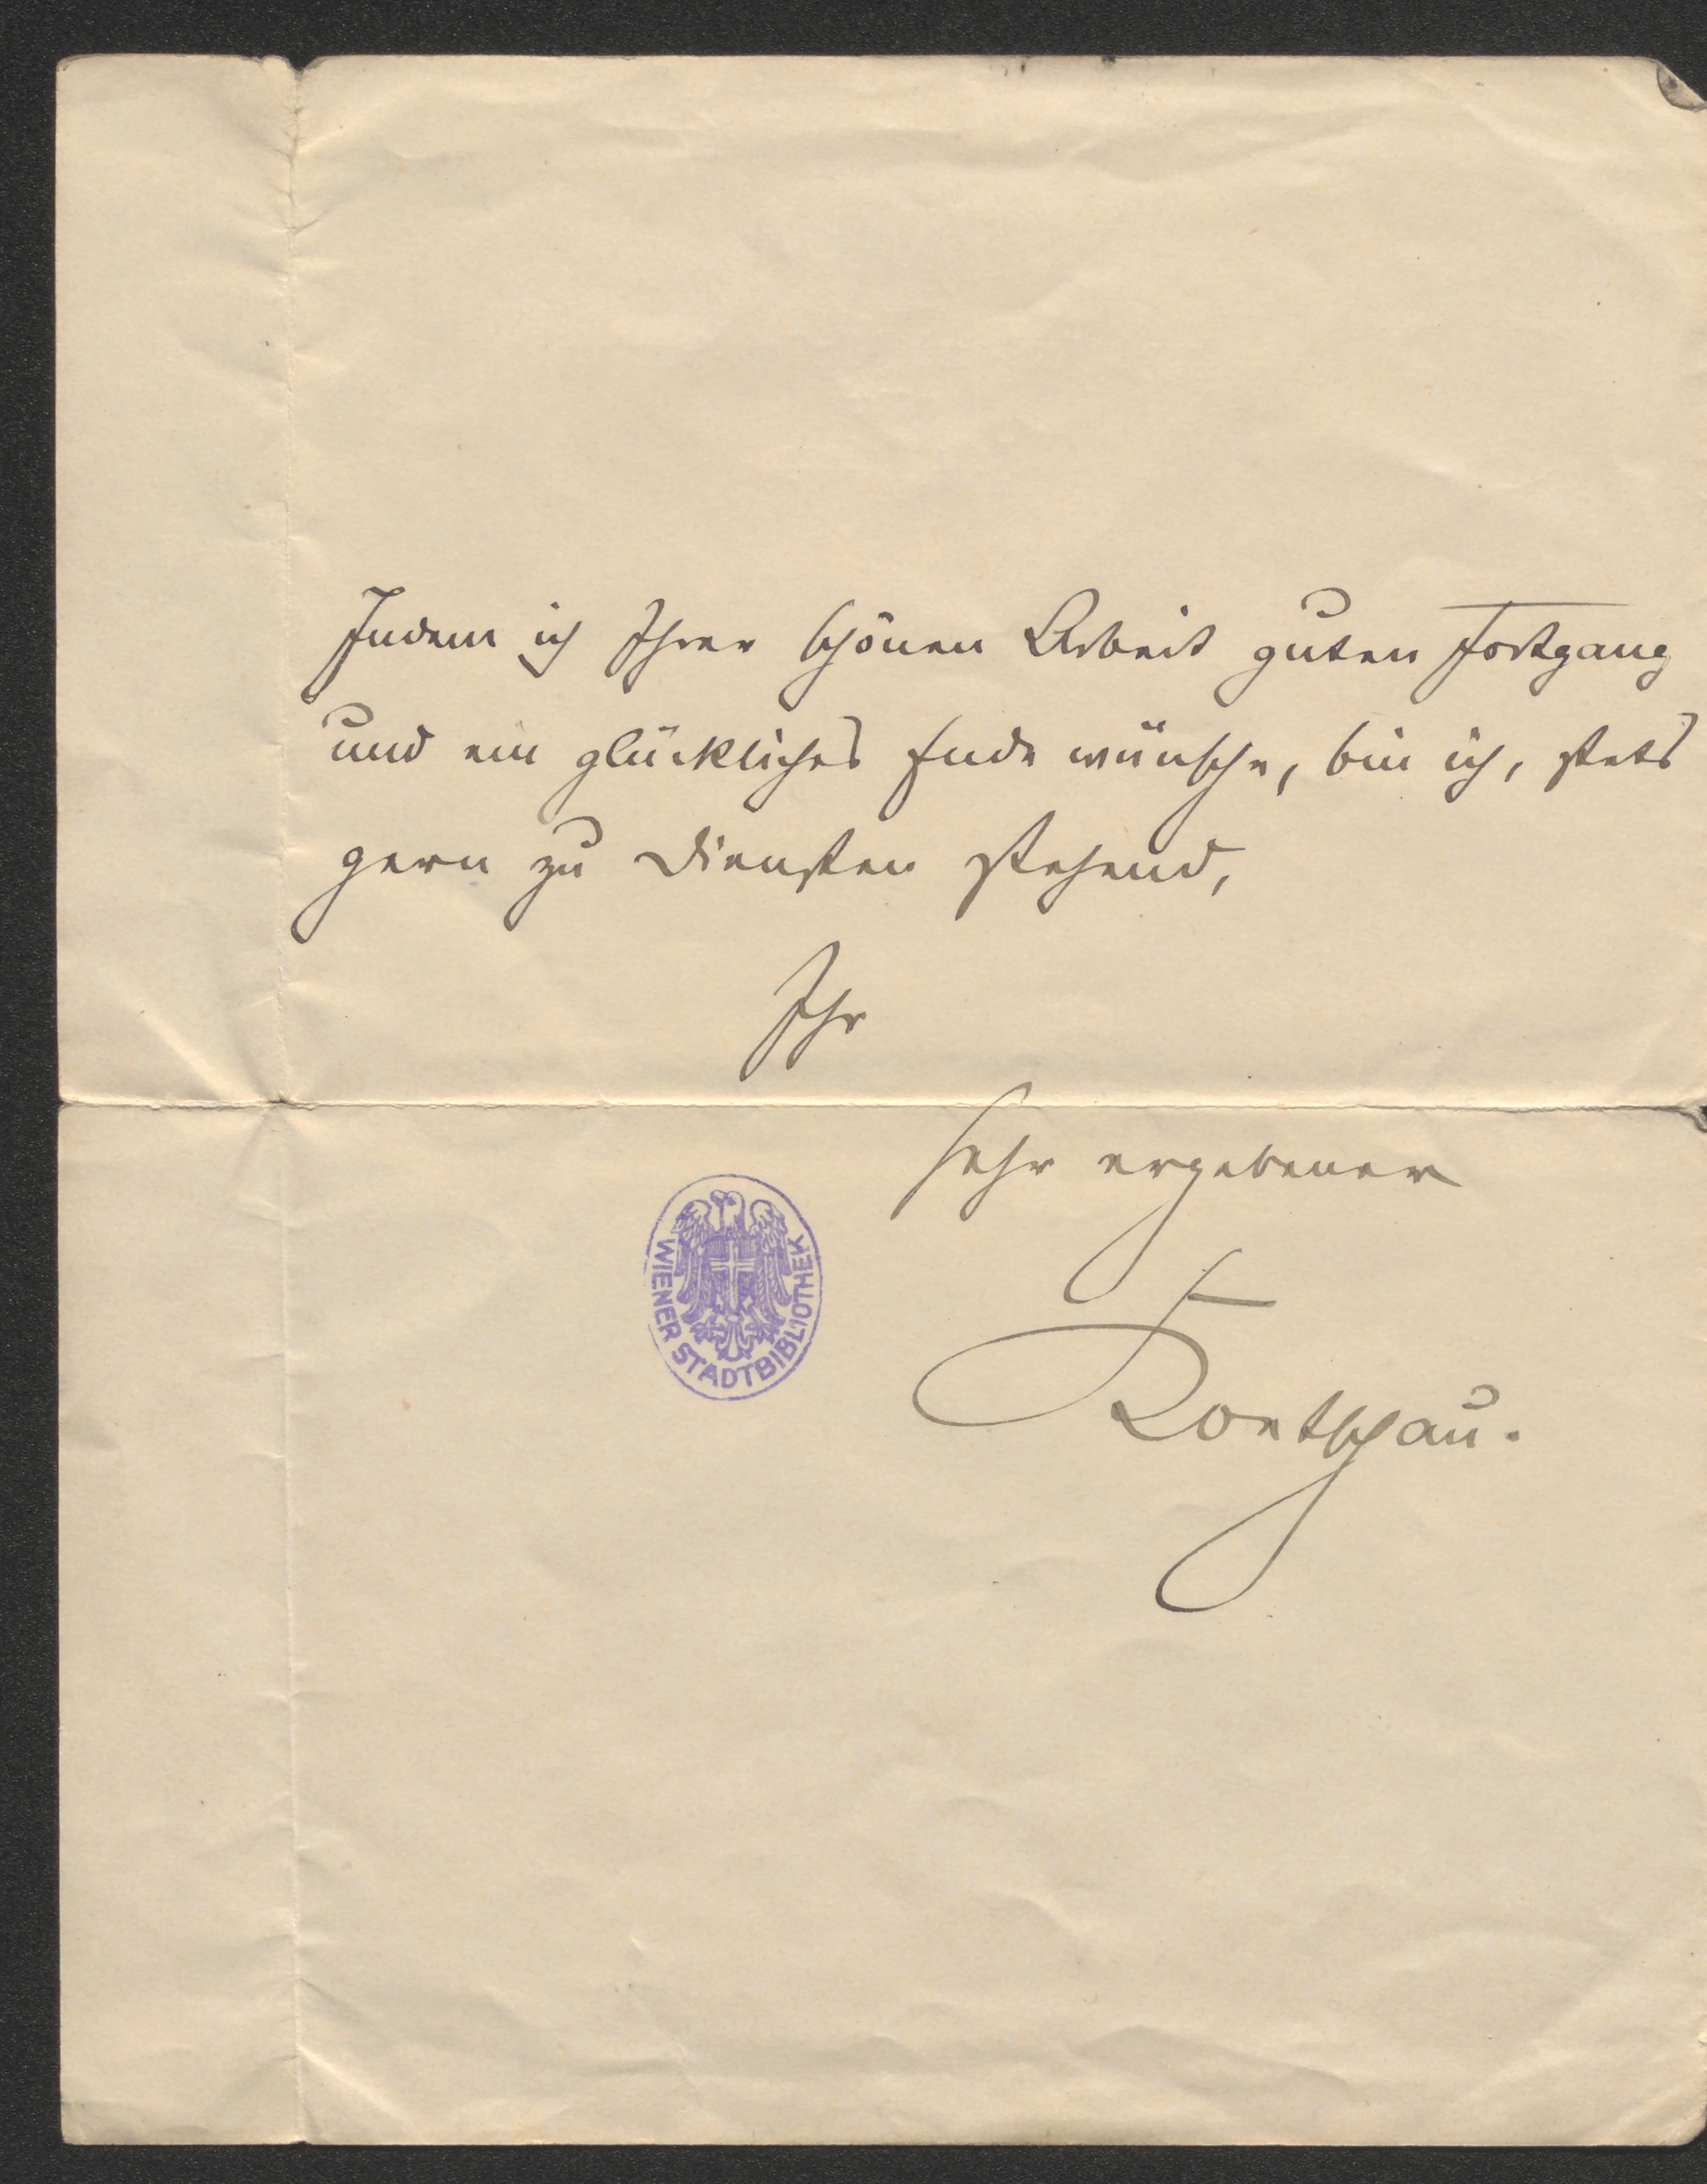 Indem ich Ihrer schönen Arbeit guten Fortgang
und ein glückliches Ende wünsche, bin ich, stets
gern zu Diensten stehend,
Ihr
sehr ergebener
Koetschau.
WIENER STADTBIBLIOTHEK